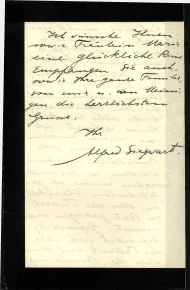 Ich wünsche Ihnen
sowie Fräulein Marie
eine glückliche Reise
Empfangen Sie auch,
sowie Ihre ganze Familie,
von mir u. den Meini-
gen die herzlichsten
Grüsse.
Ihr
Alfred Siegwart.